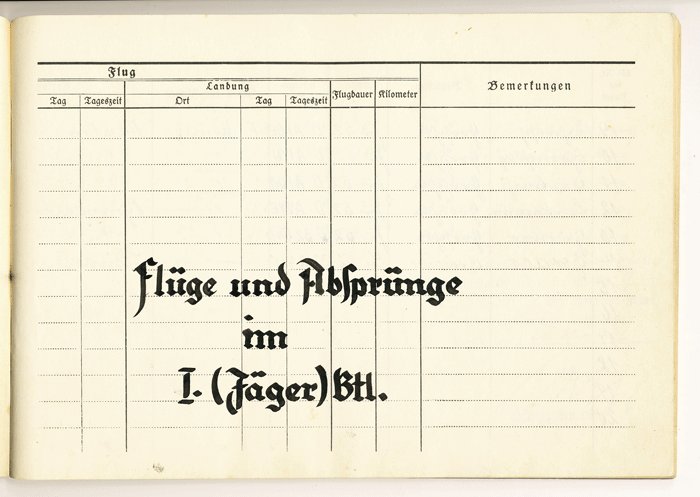 Flug
Landung
Bemerkungen
Tag Tageszeit Ort Tag Tageszeit Flugdauer Kilometer
Flüge und Absprünge
im
I. (Jäger) Btl.